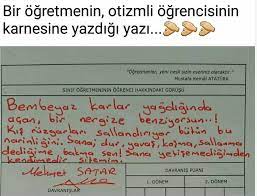 Bir öğretmenin, otizmli öğrencisinin
karnesine yazdığı yazı...
"Öğretmenler, yeni nesil sizin eseriniz olacaktır."
Mustafa Kemal ATATÜRK
SINIF ÖĞRETMENİNİN ÖĞRENCİ HAKKINDAKİ GÖRÜŞÜ
Bembeyaz karlar yağdığında
açan, bir nergize benziyorsun..!
Kış rüzgarları sallandırıyor bütün bu
narinliğini. Sana; dur, yavaş, koşma, sallanma
dediğime bakma sen! Sana yetişemediğimden
kendimedir sitemim.
Mehmet SATAR
DAVRANIŞLAR
DAVRANIŞ PUANI
1. DÖNEM
2. DÖNEM